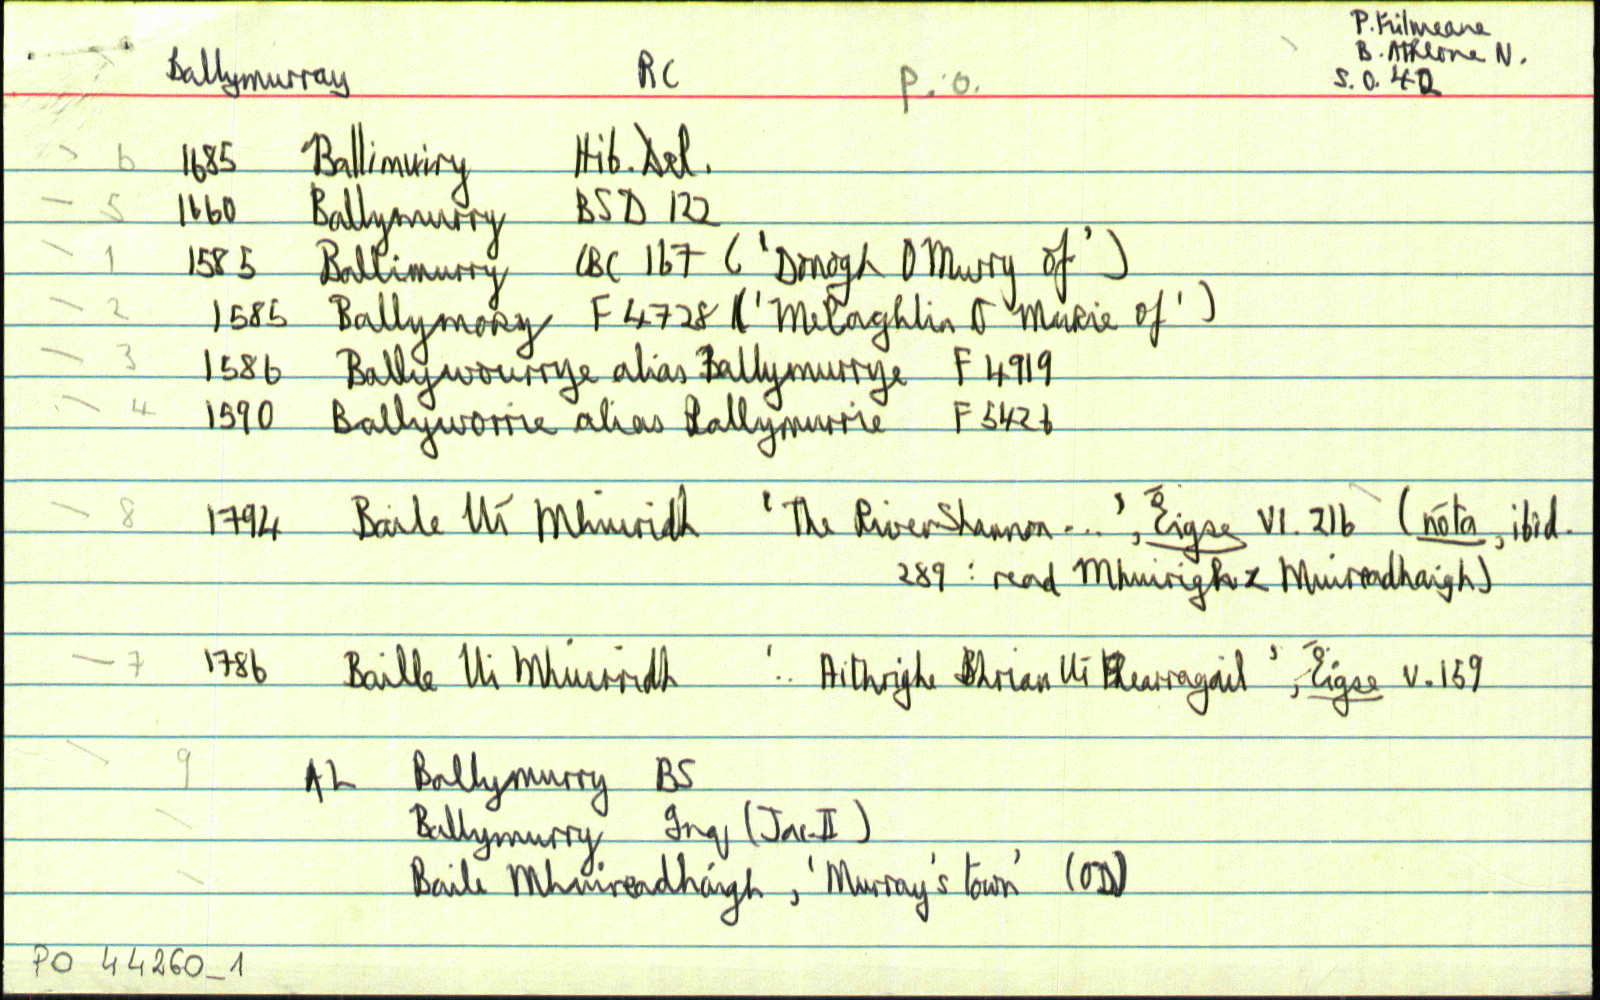 P. Kilmeane
B. Athlone N.
Ballymurray RC P.O. S.O. 42
6 1685 Ballimuiry Hib. Del.
5 1660 Ballymurry BSD 122
1 1585 Ballimurry CBC 167 ('Donogh O Murry of')
2 1585 Ballymory F 4728 ('Melaghlin O Murie of')
3 1586 Ballywourrye alias Ballymurrye F 4919
4 1590 Ballyworrie alias Ballymurrie F 5426
8 1794 Baile Uí Mhuiridh 'The River Shannon ...', Éigse VI. 216 (nóta, ibid.
289 : read Mhuirigh < Muireadhaigh)
7 1786 Baille Ui Mhuirridh ' Aithrighe Bhriain Uí Fhearragail', Éigse V. 159
9 AL Ballymurry BS
Ballymurry Inq (Jac II)
Baile Mhuireadhaigh, 'Murray's town' (OD)
PO 44260_1